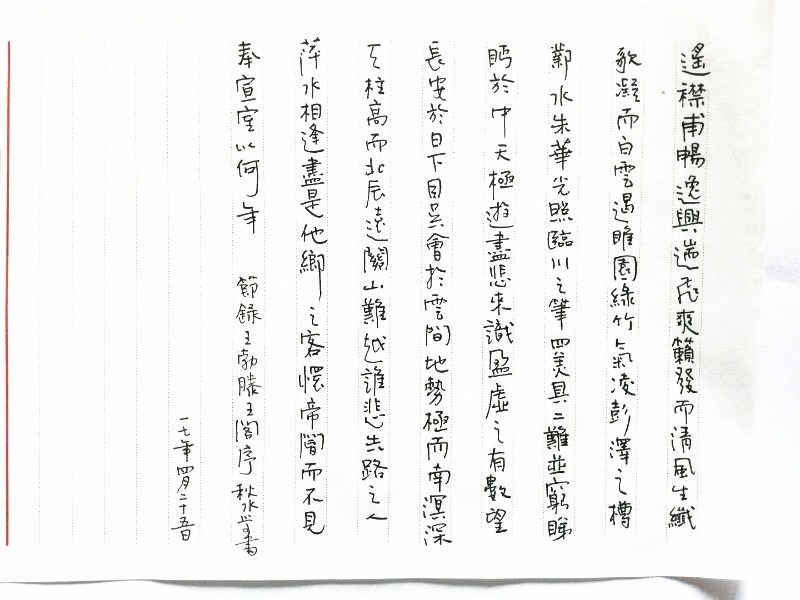 遙襟甫暢逸興遄飛爽籟發而清風生纖
歌凝而白雲遏睢園綠竹氣凌彭澤之樽
鄴水朱華光照臨川之筆四美具二難並窮睇
眄於中天極遊盡悲來識盈虛之有數望
長安於日下目吳會於雲間地勢極而南溟深
天柱高而北辰遠關山難越誰悲失路之人
萍水相逢盡是他鄉之客懷帝閽而不見
奉宣室以何年 節錄王勃滕王閣序 秋水書
一七年四月二十五日